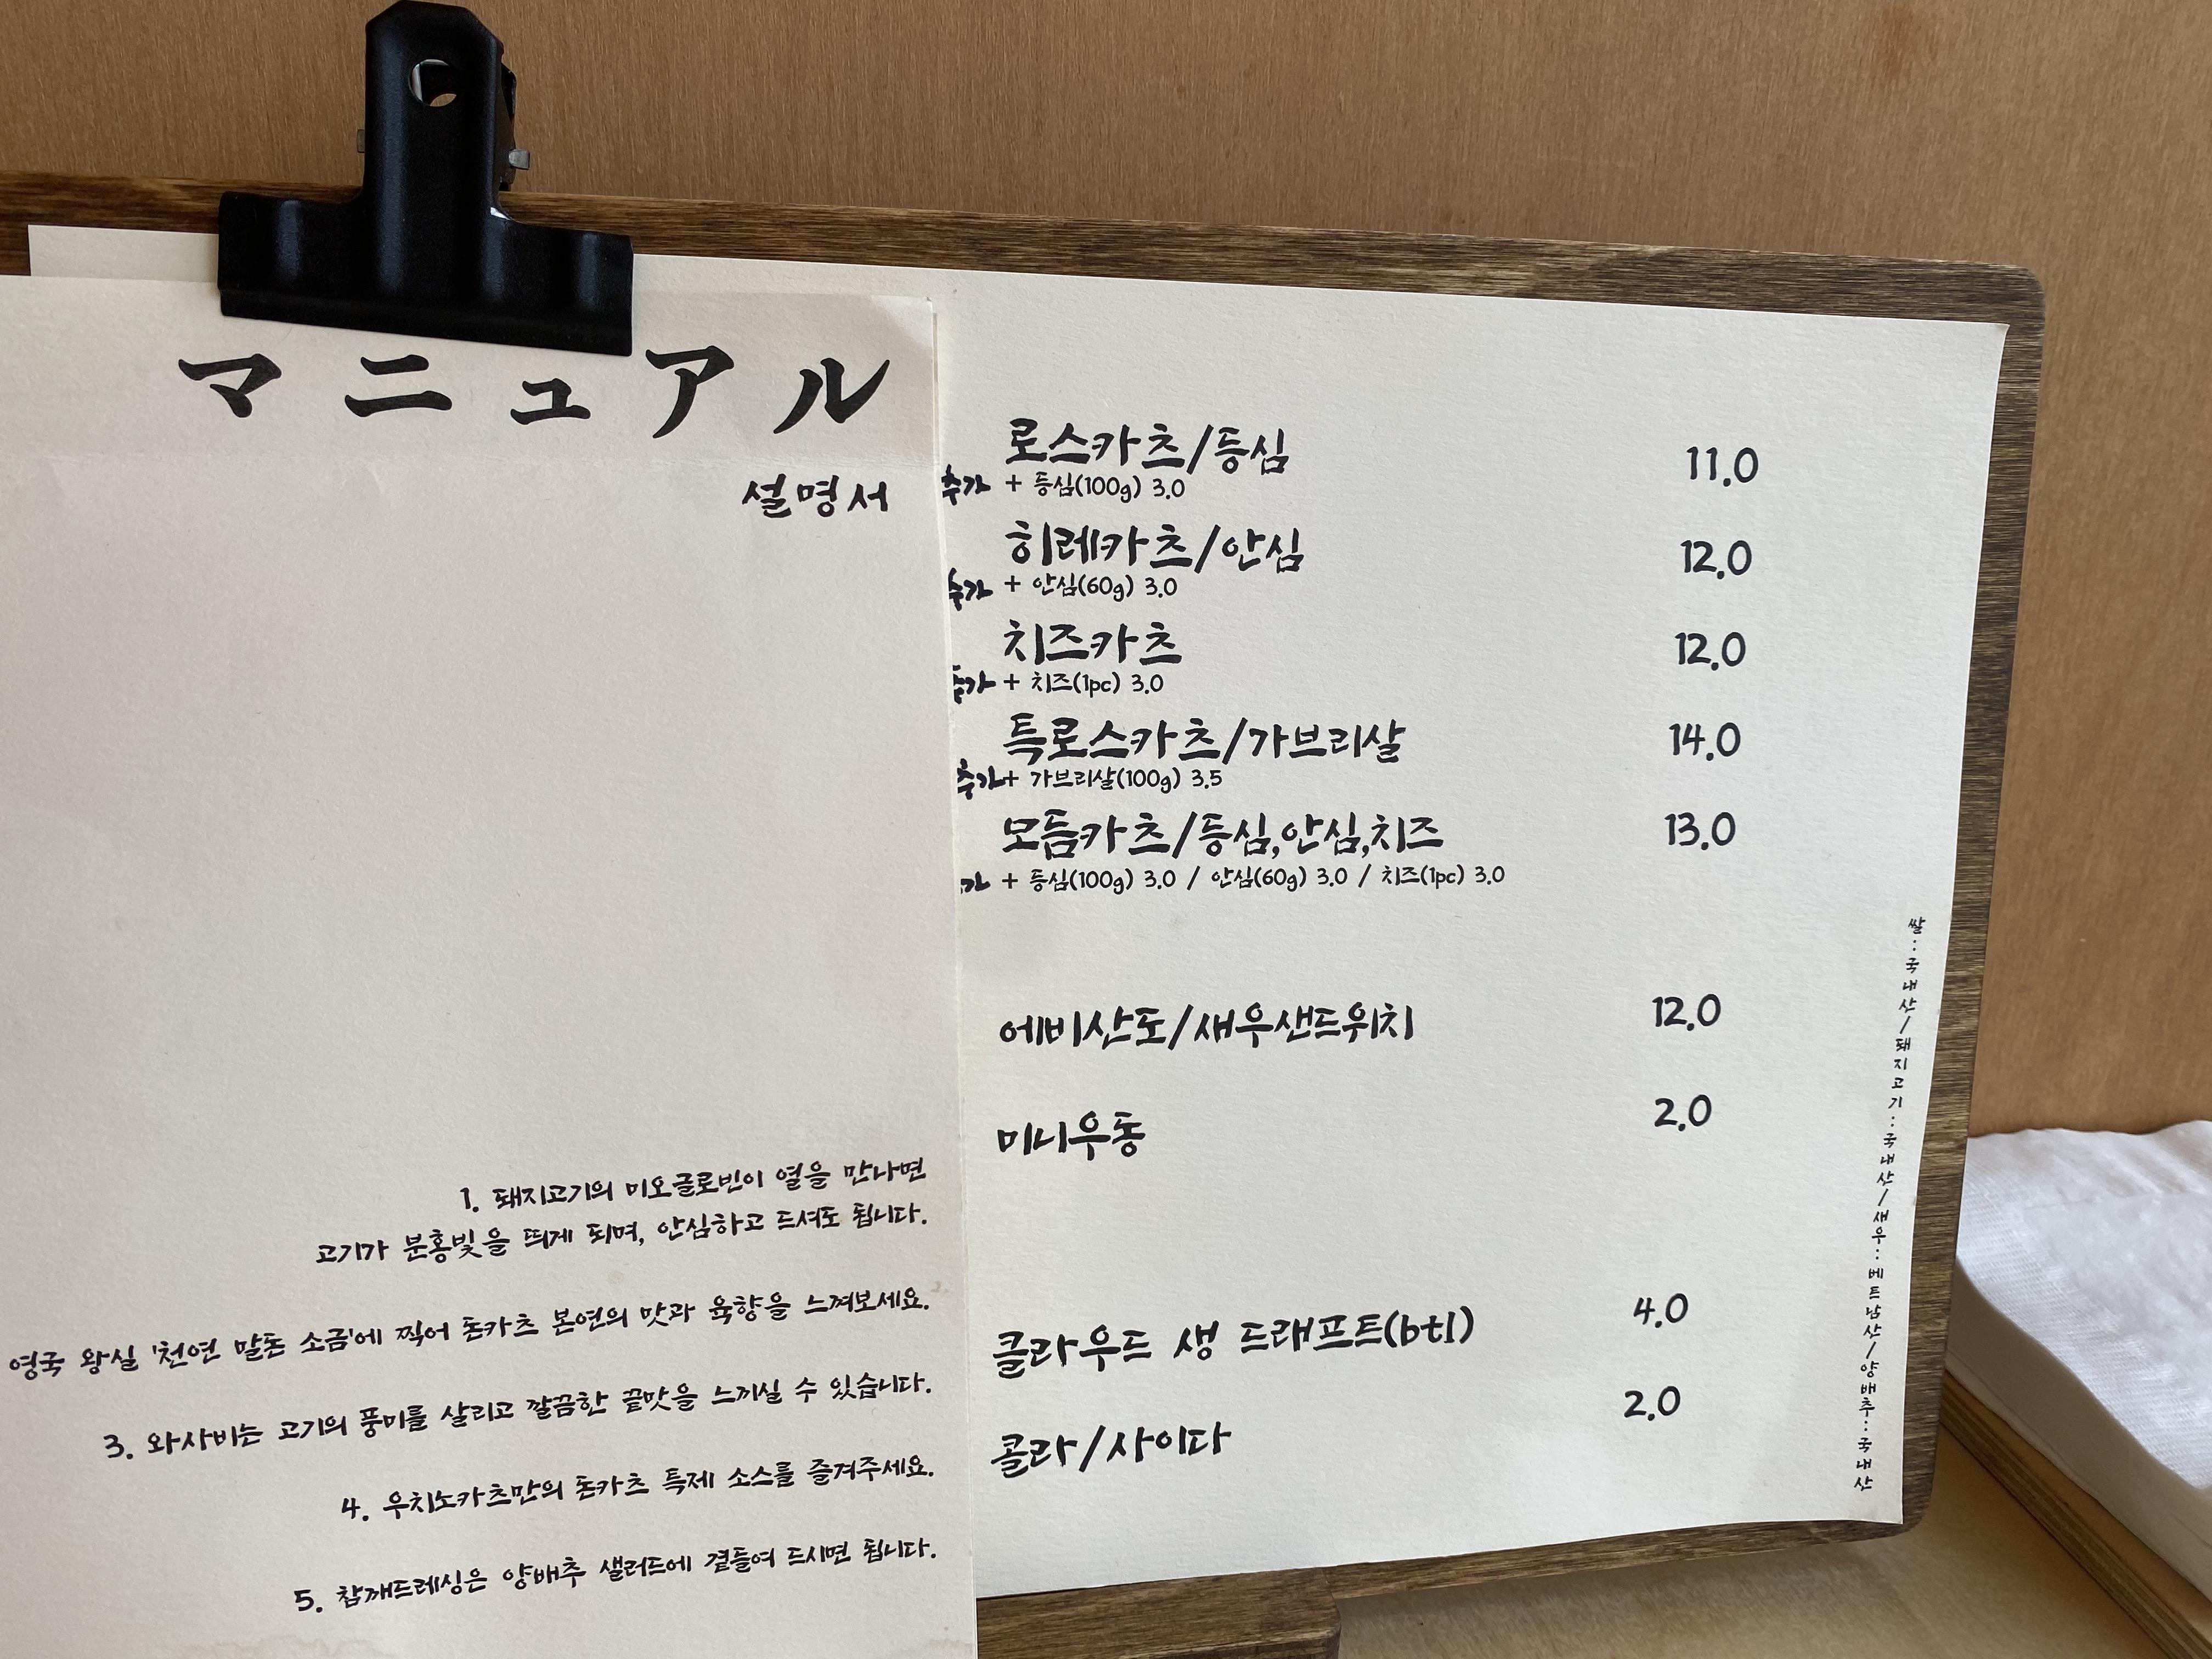 マニュアル
설명서
1. 돼지고기의 미오글로빈이 열을 만나면
고기가 분홍빛을 띄게 되며, 안심하고 드셔도 됩니다.
영국 왕실 '천연 말돈 소금'에 찍어 돈카츠 본연의 맛과 육향을 느껴보세요.
3. 와사비는 고기의 풍미를 살리고 깔끔한 끝맛을 느끼실 수 있습니다.
4. 우치노카츠만의 돈카츠 특제 소스를 즐겨주세요.
5. 참깨드레싱은 양배추 샐러드에 곁들여 드시면 됩니다.
로스카츠/등심 11.0
추가 + 등심(100g) 3.0
히레카츠/안심 12.0
추가 + 안심(60g) 3.0
치즈카츠 12.0
추가 + 치즈(1pc) 3.0
특로스카츠/가브리살 14.0
추가 + 가브리살(100g) 3.5
모듬카츠/등심,안심,치즈 13.0
가 + 등심(100g) 3.0 / 안심(60g) 3.0 / 치즈(1pc) 3.0
에비산도/새우샌드위치 12.0
미니우동 2.0
클라우드 생 드래프트(btl) 4.0
콜라/사이다 2.0
쌀:국내산/돼지고기:국내산/새우:베트남산/양배추:국내산